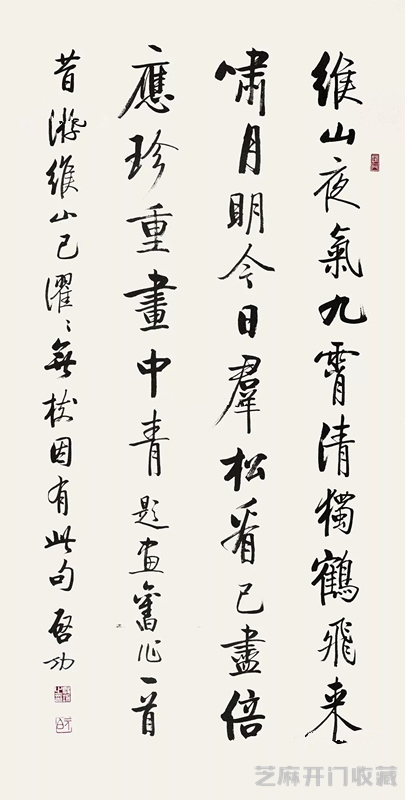 緱山夜氣九霄清獨鶴飛来
嘯月明今日羣松看已盡倍
應珍重畫中青題畫舊作一首
昔游緱山已濯〻無樹因有此句啓功
芝麻开门收藏